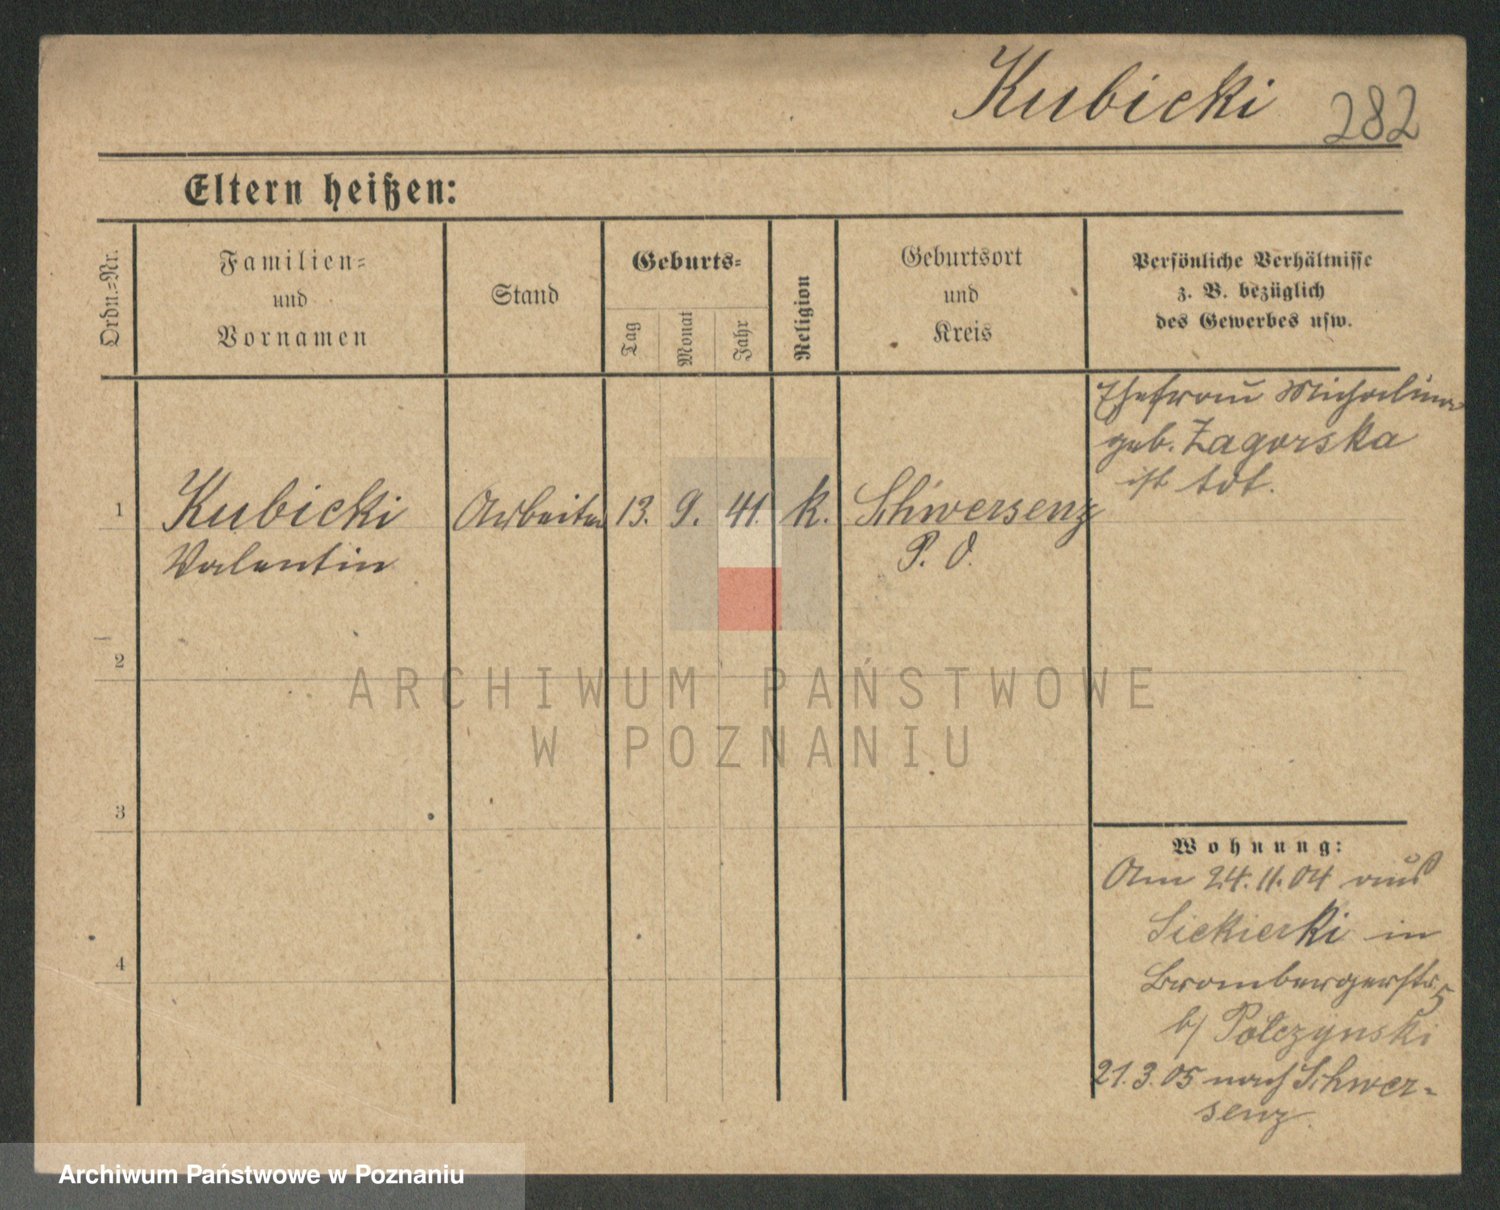 Kubicki 282
Eltern heißen:
Ordn.-Nr.
Familien-
und
Vornamen
Stand
Geburts-
Tag
Monat
Jahr
Religion
Geburtsort
und
Kreis
Persönliche Verhältnisse
z. B. bezüglich
des Gewerbes usw.
Ehefrau Michalina
geb. Zagorska
ist tot.
1 Kubicki Arbeiter 13. 9. 41. k. Schwersenz
Valentin P. O.
2
3
4
Wohnung:
Am 24.11.04 aus
Siekierki in
Brombergerstr. 5
b/ Polczynski
21.3.05 nach Schwer-
senz.
ARCHIWUM PAŃSTWOWE
W POZNANIU
Archiwum Państwowe w Poznaniu